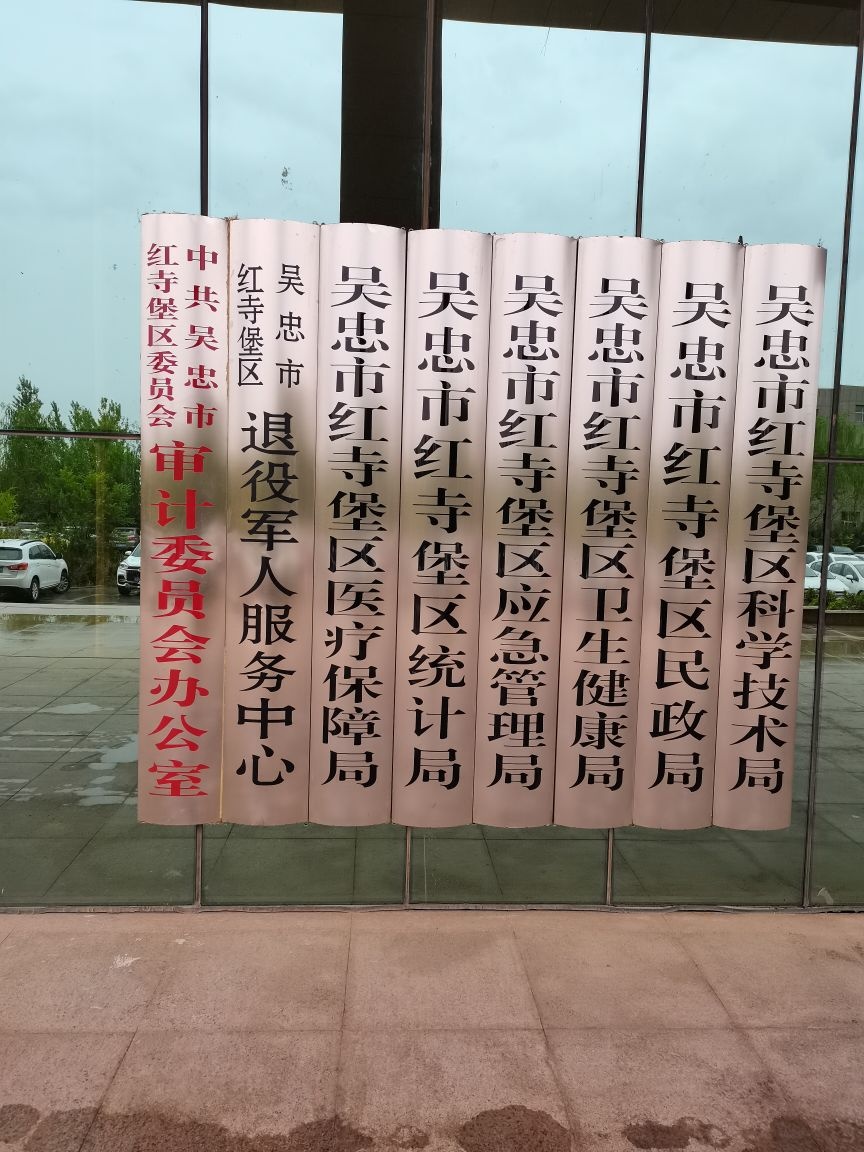 中共吴忠市
红寺堡区委员会
审计委员会办公室
吴忠市
红寺堡区
退役军人服务中心
吴忠市红寺堡区医疗保障局
吴忠市红寺堡区统计局
吴忠市红寺堡区应急管理局
吴忠市红寺堡区卫生健康局
吴忠市红寺堡区民政局
吴忠市红寺堡区科学技术局